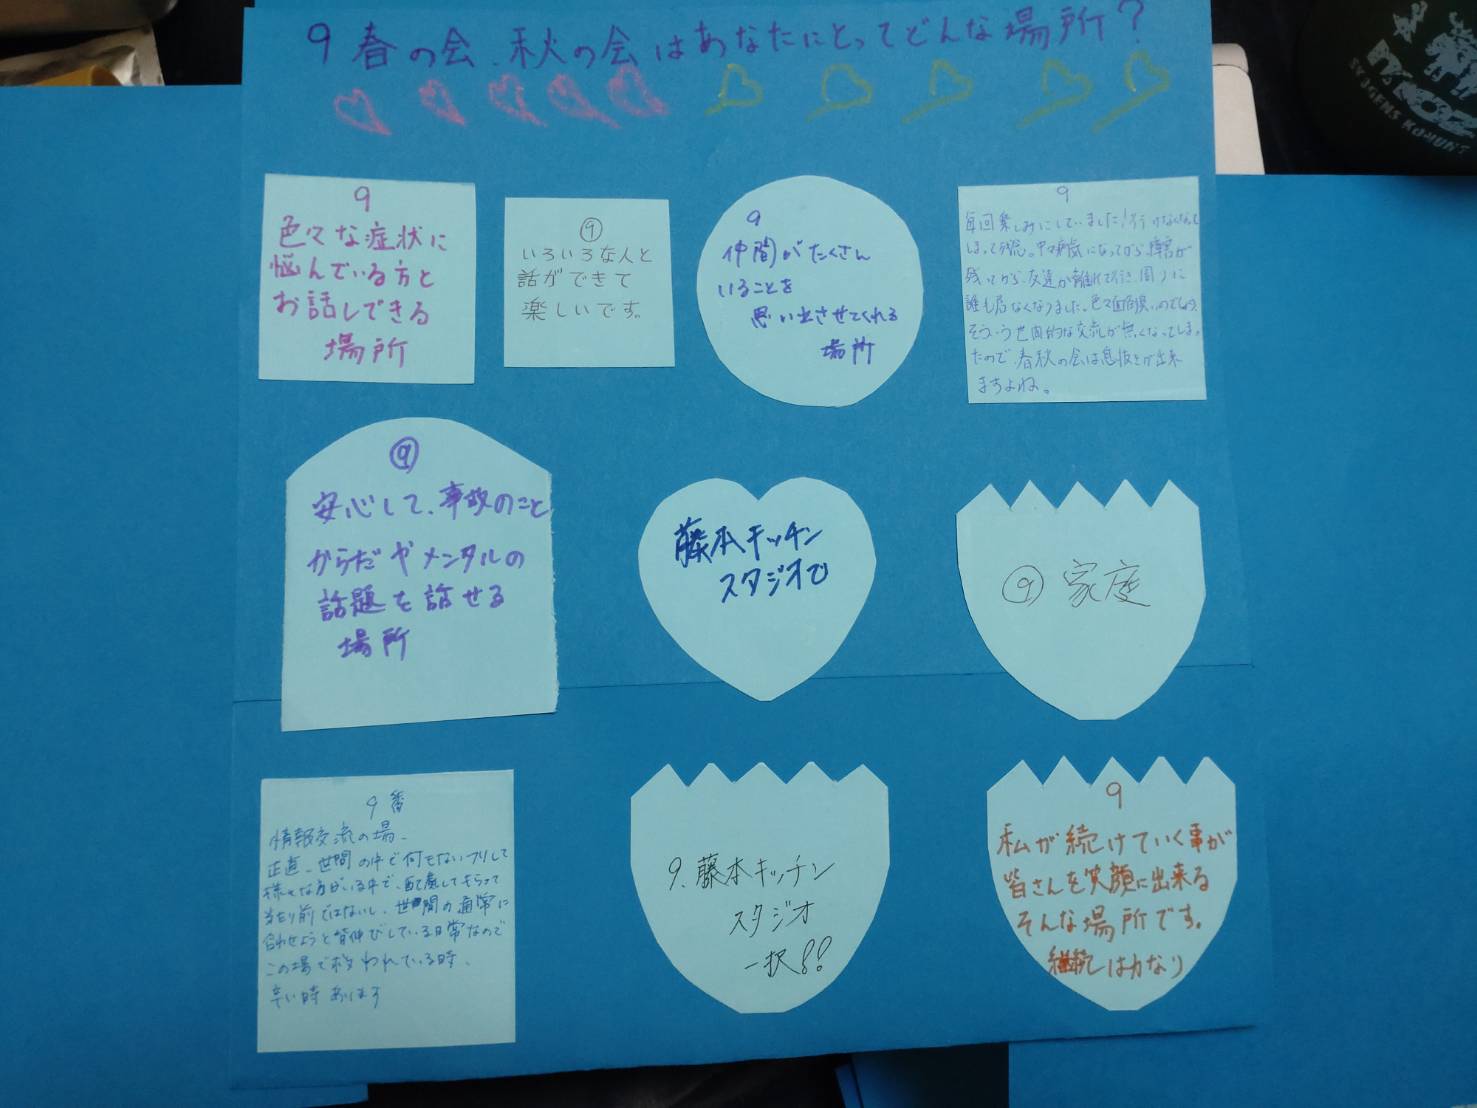 9 春の会、秋の会はあなたにとってどんな場所?
9
色々な症状に
悩んでいる方と
お話しできる
場所
⑨
いろいろな人と
話ができて
楽しいです。
9
仲間がたくさん
いることを
思い出させてくれる
場所
9
毎回楽しみにしていました!行けなくなって
しまって残念。
病気になってから障害が
残ってから、友達が離れて行き、周りに
誰も居なくなりました。色々面倒臭いのでしょう。
そういう世間的な交流が無くなってしまっ
たので、春秋の会は息抜きが出来
ますよね。
⑨
安心して、事故のこと
からだやメンタルの
話題を話せる
場所
藤本キッチン
スタジオで
⑨ 家庭
9番
情報交流の場、
正直、世間の中で何もないフリして
様々な方がいる中で、配慮してもらって
当たり前ではないし、世間の通常に
合わせようと背伸びしている日常なので
この場で救われている時、
辛い時あります
9. 藤本キッチン
スタジオ
一択!!
9
私が続けていく事が
皆さんを笑顔に出来る
そんな場所です。
継続は力なり